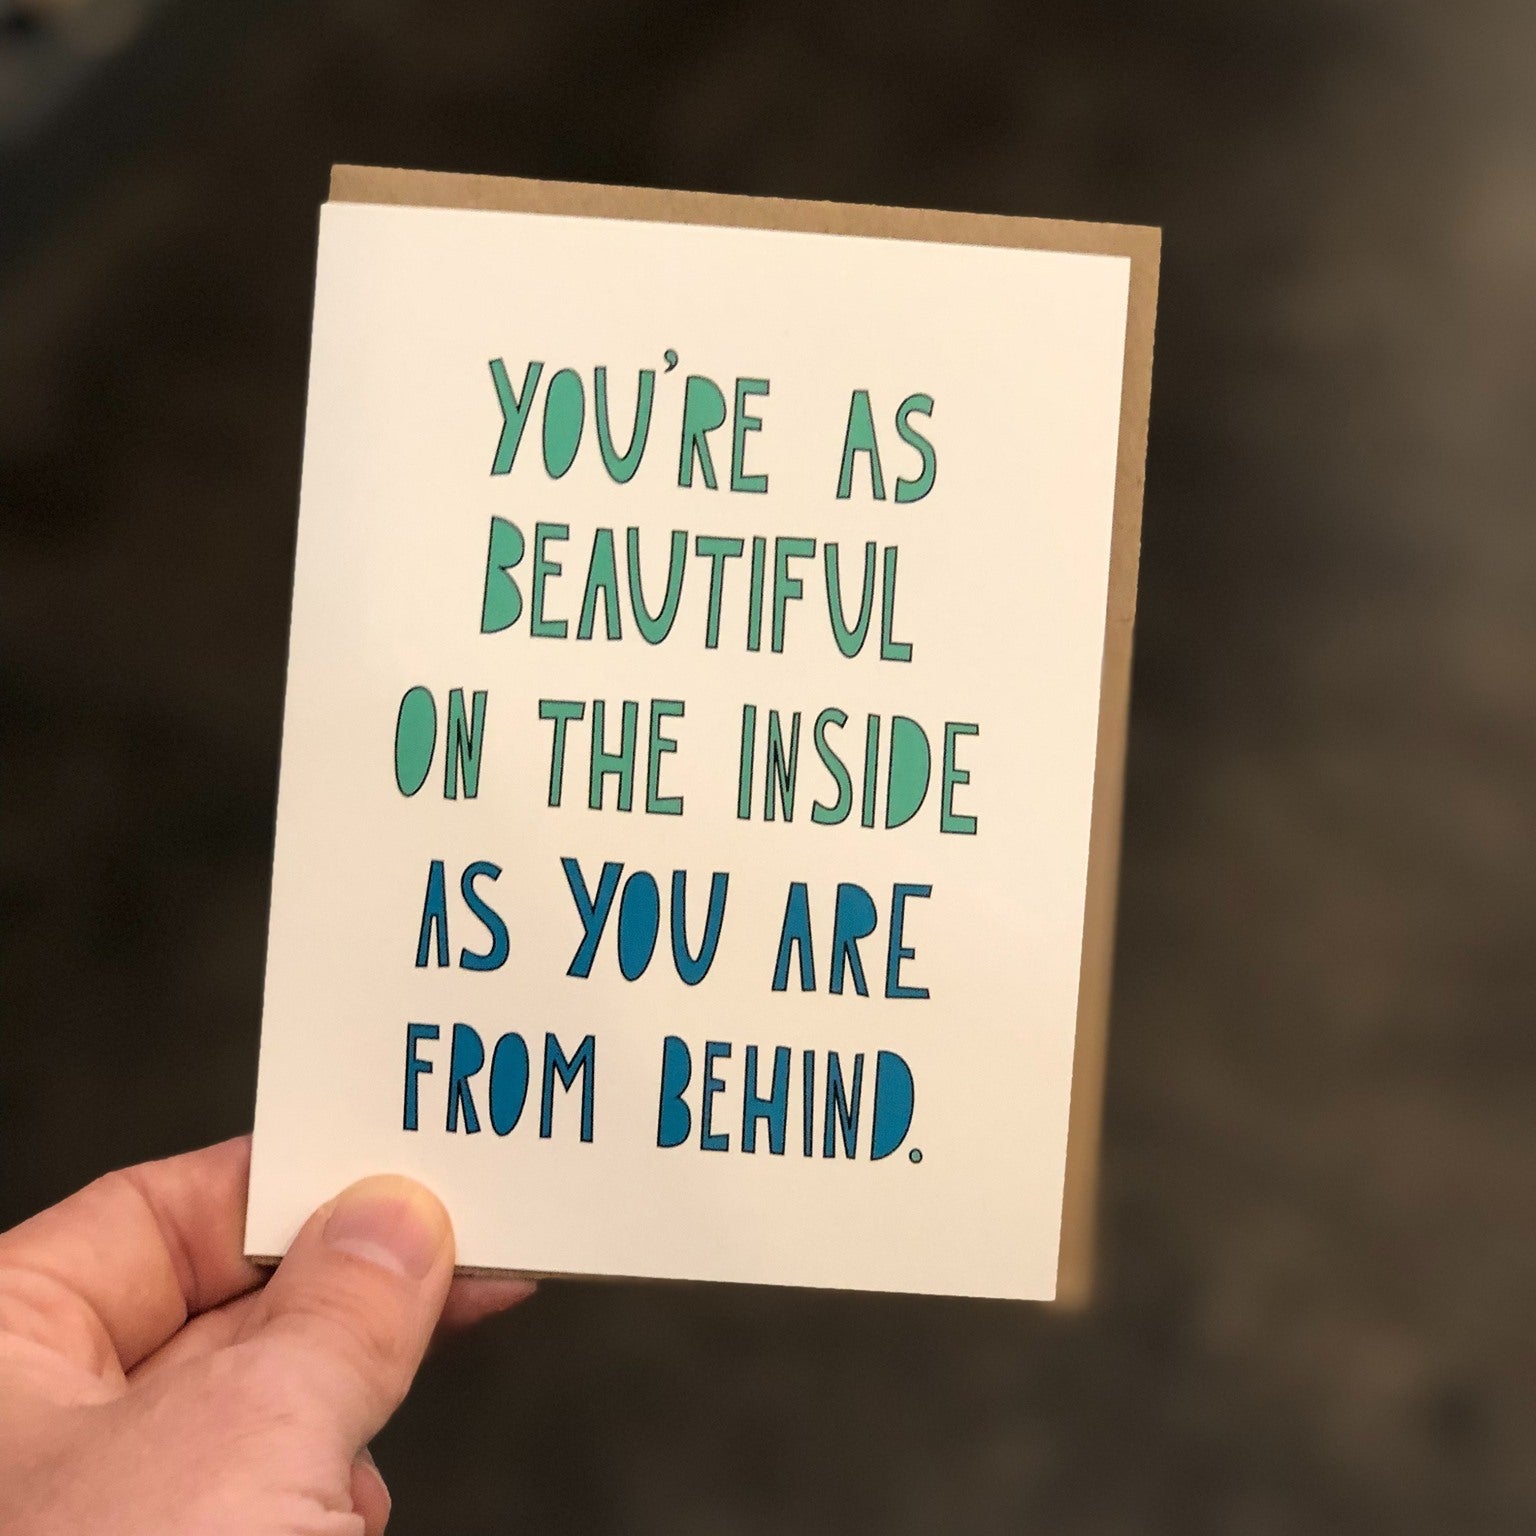 YOU'RE AS
BEAUTIFUL
ON THE INSIDE
AS YOU ARE
FROM BEHIND.